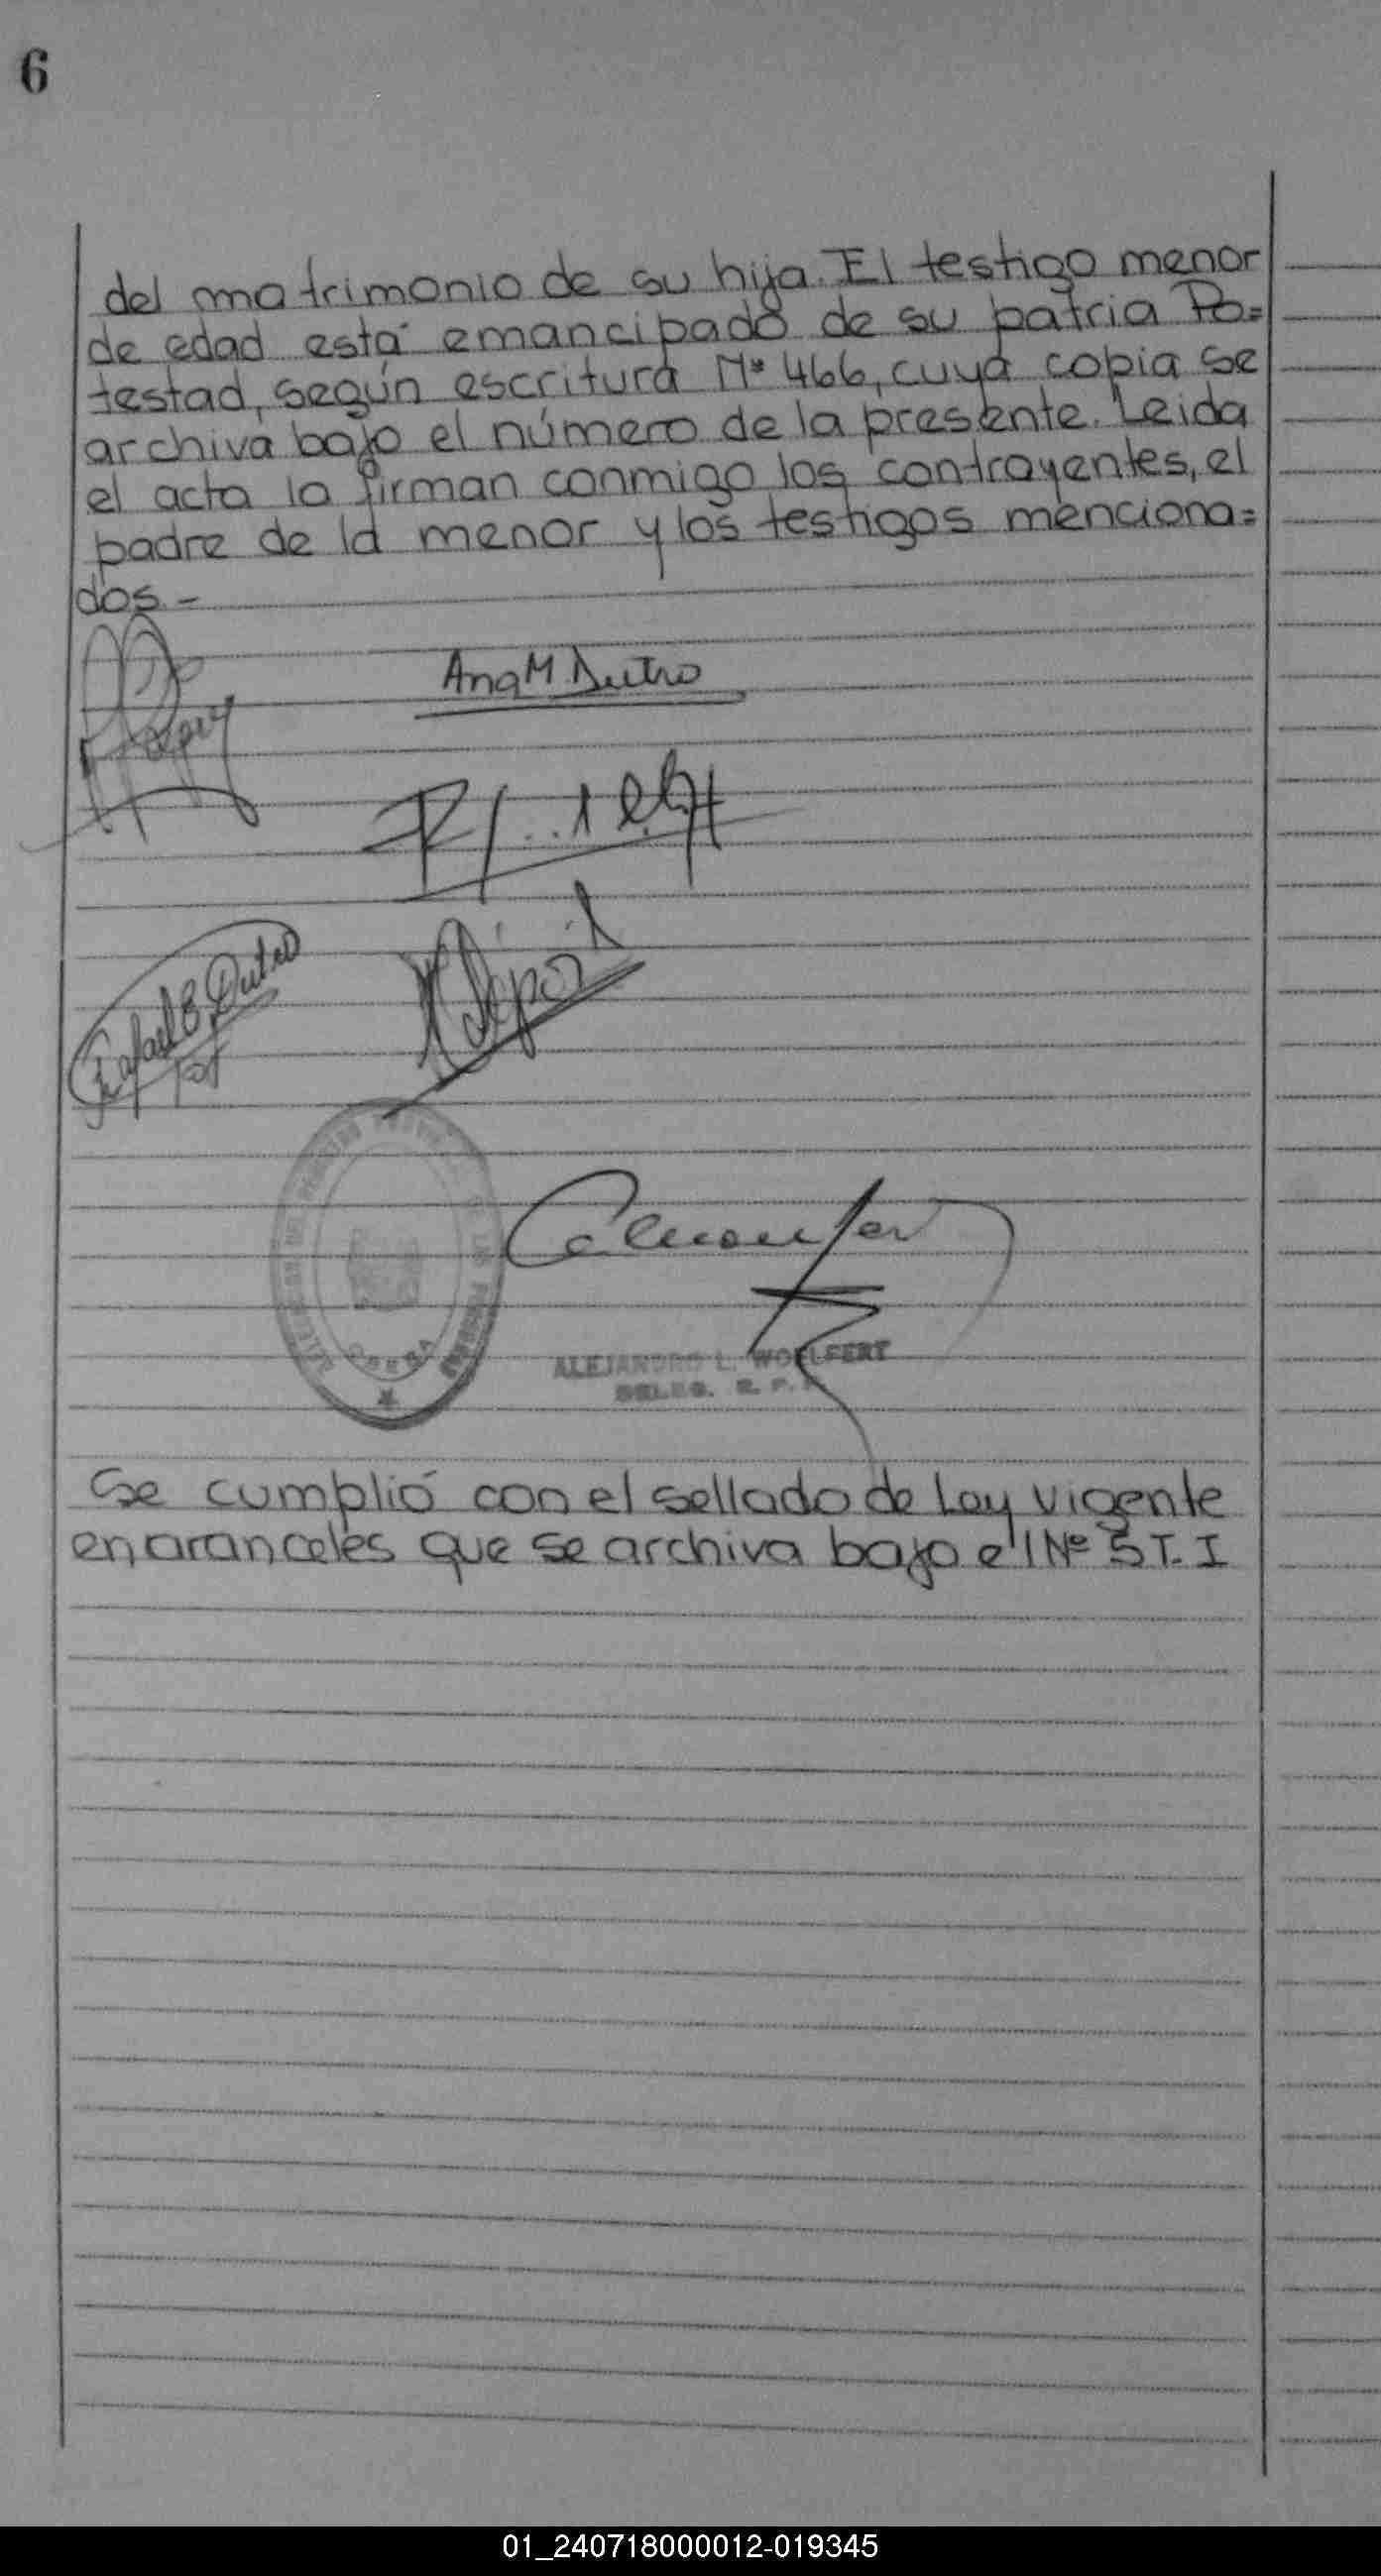 6
del matrimonio de su hija. El testigo menor
de edad está emancipado de su patria Po=
testad, según escritura Nº 466, cuya copia se
archiva bajo el número de la presente. Leida
el acta la firman conmigo los contrayentes, el
padre de la menor y los testigos menciona=
dos.-
Ana M Dutro
Rafael E. Dutro
ALEJANDRO L. WOELFERT
DELEG. R. P.
Se cumplió con el sellado de Ley vigente
en aranceles que se archiva bajo el Nº 5 T. I
01_240718000012-019345